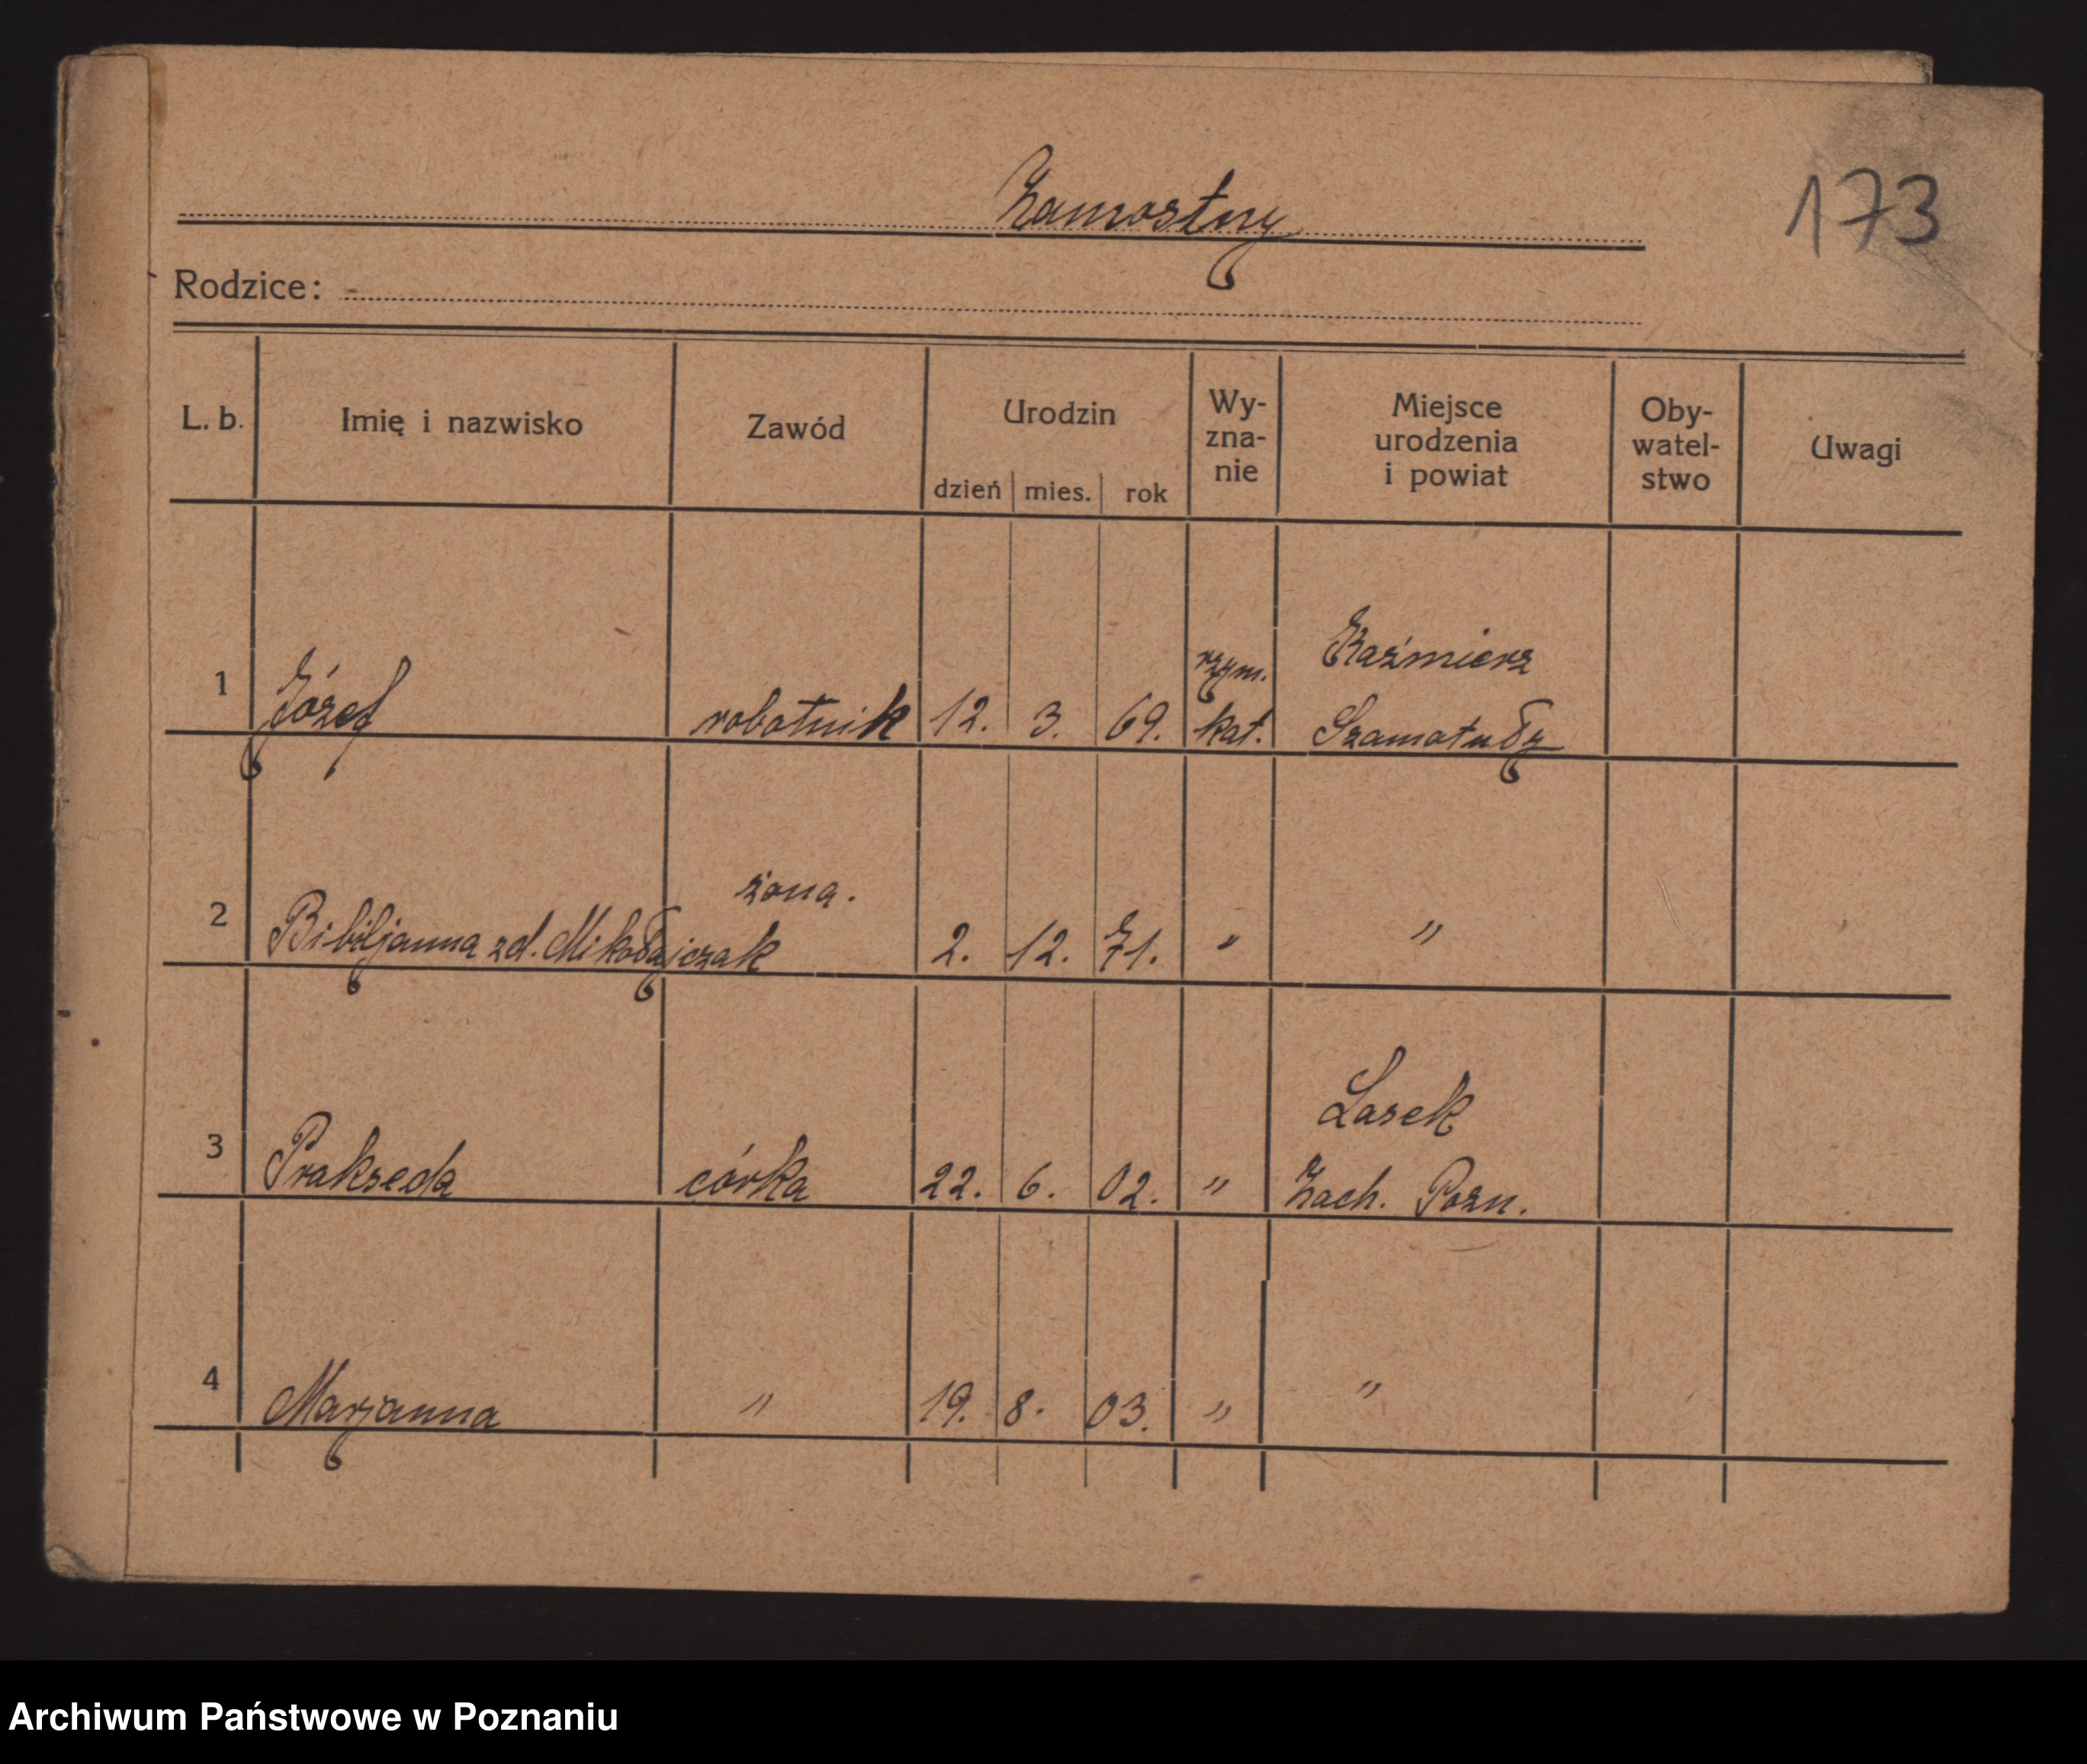 Zamostny
173
Rodzice:
L. b. Imię i nazwisko Zawód Urodzin dzień mies. rok Wy-zna-nie Miejsce urodzenia i powiat Oby-watel-stwo Uwagi
rzym. Kaźmierz
1 Józef robotnik 12. 3. 69. kat. Szamotuły
żona.
2 Bibiljanna zd. Mikołajczak 2. 12. 71. " "
Lasek
3 Prakseda córka 22. 6. 02. " Zach. Pozn.
4 Marjanna " 19. 8. 03. " "
Archiwum Państwowe w Poznaniu